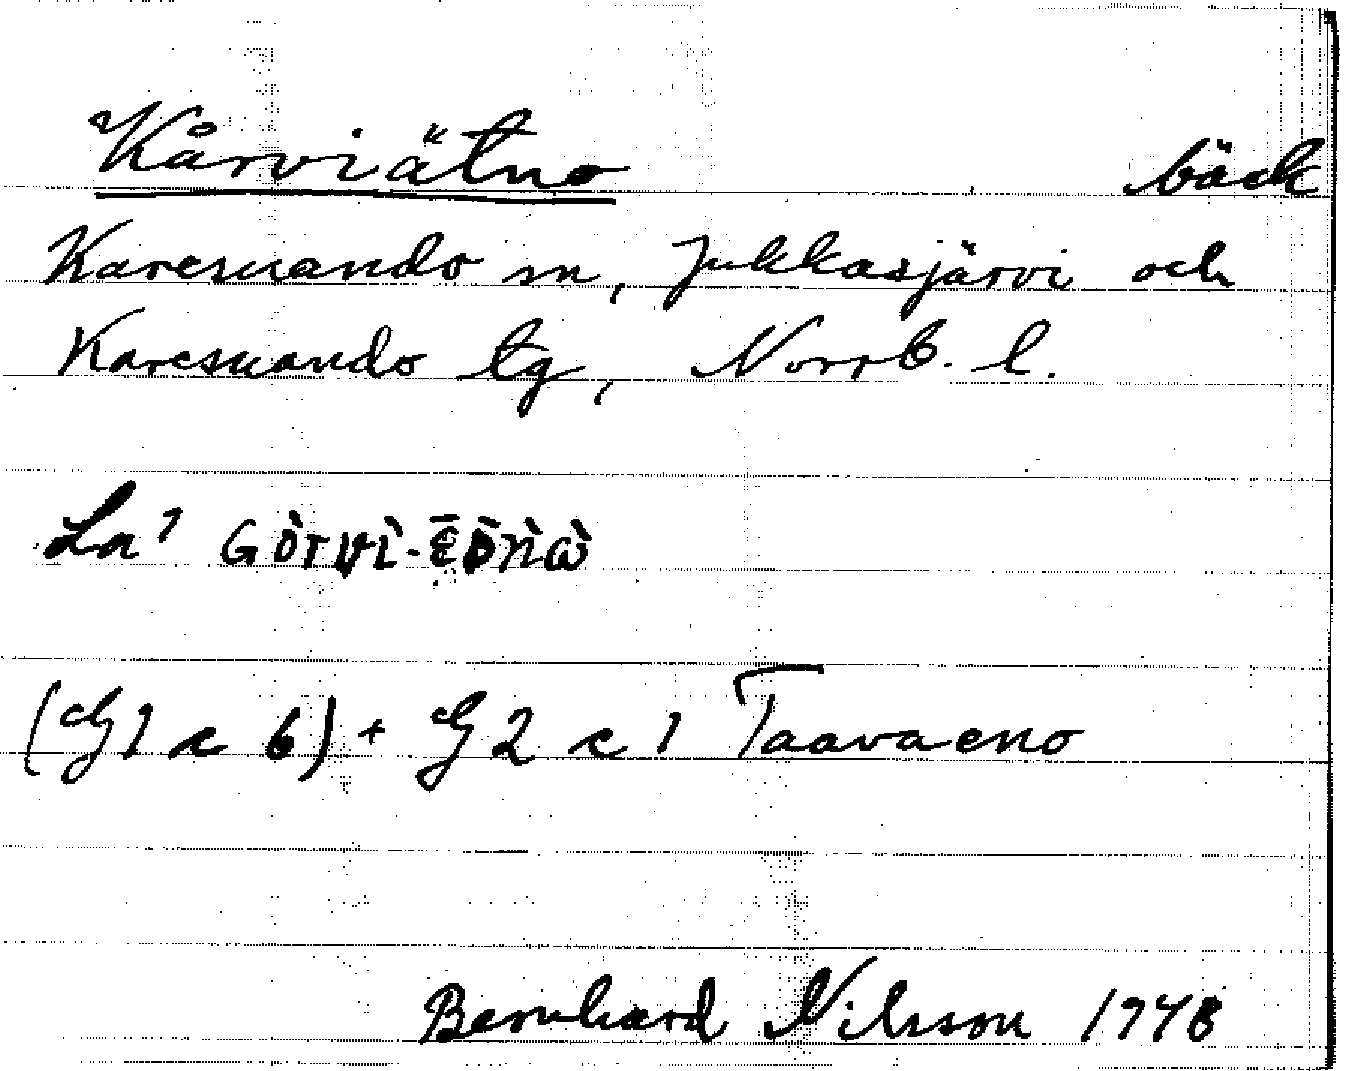 Kårviätno bäck
Karesuando sn, Jukkasjärvi och
Karesuando tg, Norrb. l.
La'
(G1 c 6) + G2 c 1 Taavaeno
Bernhard Nilsson 1948